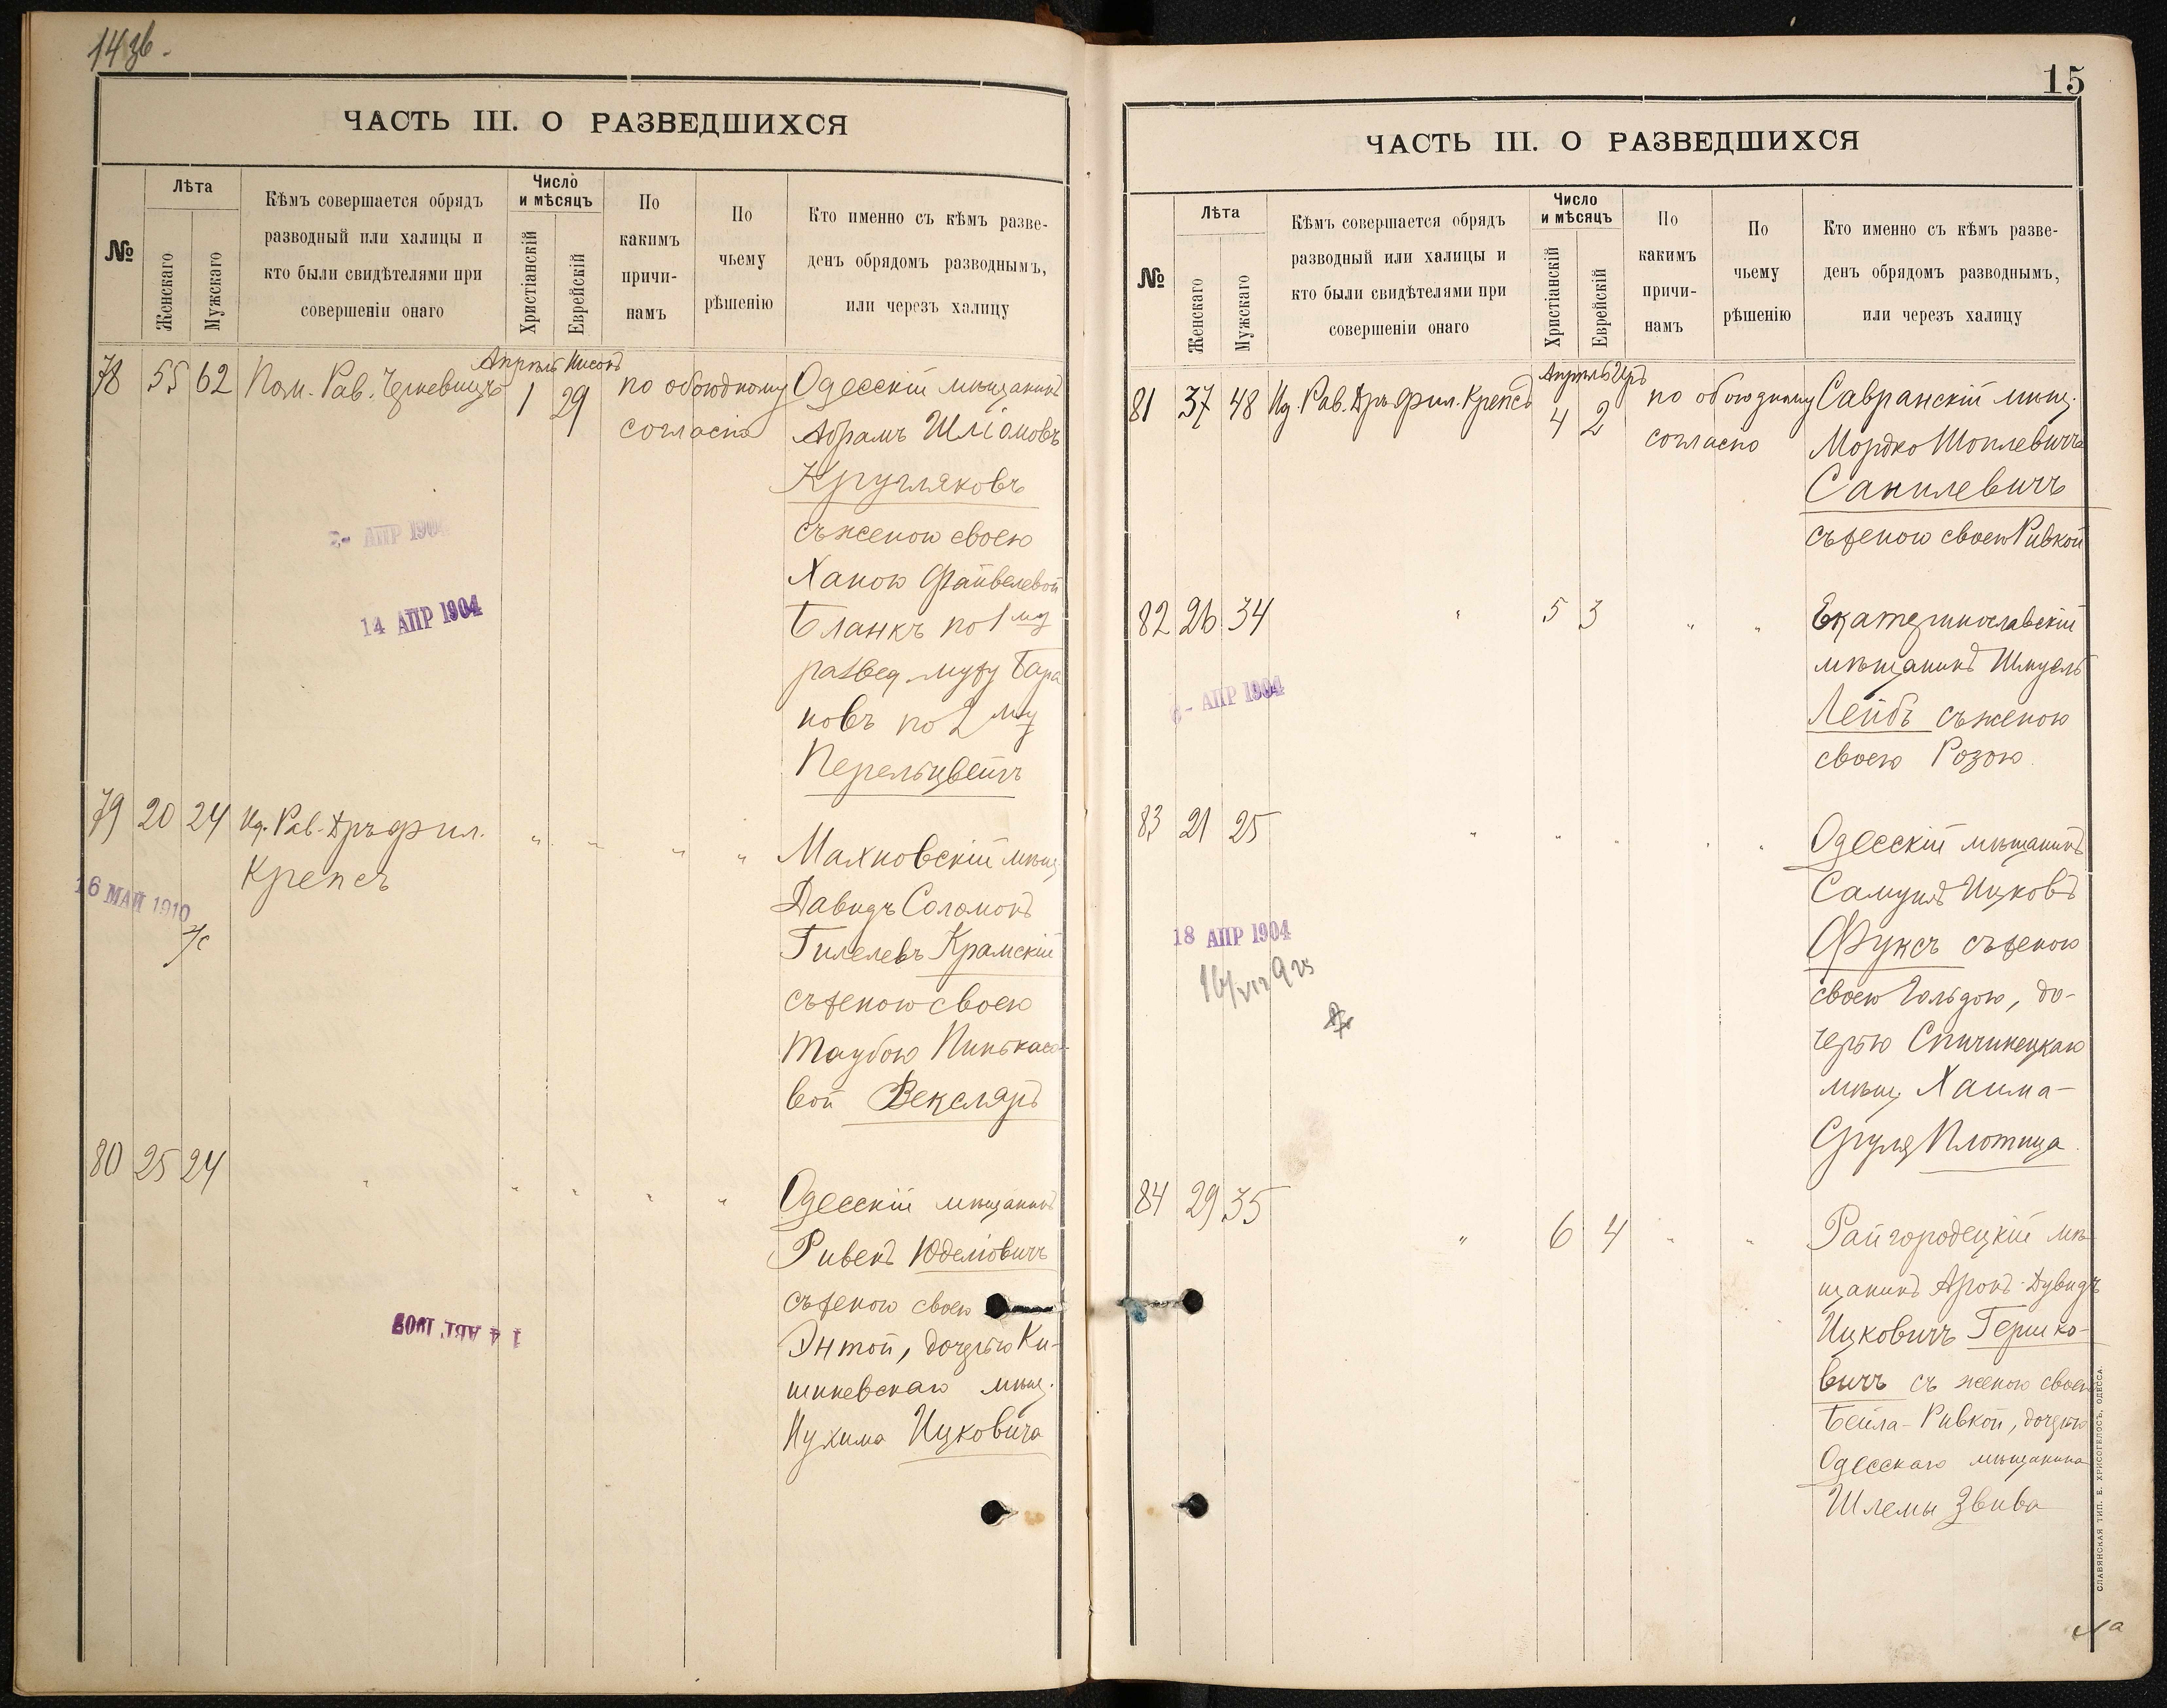 14 зв.
ЧАСТЬ III. О РАЗВЕДШИХСЯ
№
Лѣта
Женскаго
Мужскаго
Кѣмъ совершается обрядъ
разводный или халицы и
кто были свидѣтелями при
совершеніи онаго
Число
и мѣсяцъ
Христіанскій
Еврейскій
По
какимъ
причи-
намъ
По
чьему
рѣшенію
Кто именно съ кѣмъ разве-
денъ обрядомъ разводнымъ,
или черезъ халицу
Апрѣль Нисонъ
78 55 62 Пом. Рав. Черкевичъ 1 29 по обоюдному Одесскій мѣщанинъ
согласію Абрамъ Шліомовъ
Кругляковъ
съ женою своею
Ханою Файвелевой
Бланкъ по 1му
развед. мужу Бара
новъ по 2му
Перельцвейгъ
2- АПР 1904
14 АПР 1904
79 20 24 Ид. Рав. Дръ фил. " " " " Махновскій мѣщ.
Крепсъ Давидъ Соломонъ
Гилелевъ Крамскій
съ женою своею
Таубою Пинькасо-
вой Векслеръ
16 МАЙ 1910
80 25 24 " " " " " Одесскій мѣщанинъ
Ривенъ Юделіовичъ
съ женою своею
Энтой, дочерью Ки-
шиневскаго мѣщ.
Нухима Ицковича
14 АВГ. 1908
15
ЧАСТЬ III. О РАЗВЕДШИХСЯ
№
Лѣта
Женскаго
Мужскаго
Кѣмъ совершается обрядъ
разводный или халицы и
кто были свидѣтелями при
совершеніи онаго
Число
и мѣсяцъ
Христіанскій
Еврейскій
По
какимъ
причи-
намъ
По
чьему
рѣшенію
Кто именно съ кѣмъ разве-
денъ обрядомъ разводнымъ,
или черезъ халицу
Апрѣль Иръ
81 37 48 Ид. Рав. Дръ фил. Крепсъ 4 2 по обоюдному Савранскій мѣщ.
согласію Мордко
Санилевичъ
съ женою своею Ривкой
82 26 34 " 5 3 " " Екатеринославскій
мѣщанинъ Шмуель
Лейбъ съ женою
своею Розою
6- АПР 1904
83 21 25 " " " " " Одесскій мѣщанинъ
Самуилъ Ицковъ
Фуксъ съ женою
своею Гольдою, до-
черью Спичинецкаго
мѣщ. Хаима-
Сруля Плотица.
18 АПР 1904
84 29 35 " 6 4 " " Райгородецкій мѣ-
щанинъ Аронъ-Дувидъ
Ицковичъ Гершко-
вичъ съ женою своею
Бейла-Ривкой, дочерью
Одесскаго мѣщанина
Шлемы Звива
СЛАВЯНСКАЯ ТИП. Е. ХРИСОГЕЛОСЪ, ОДЕССА.